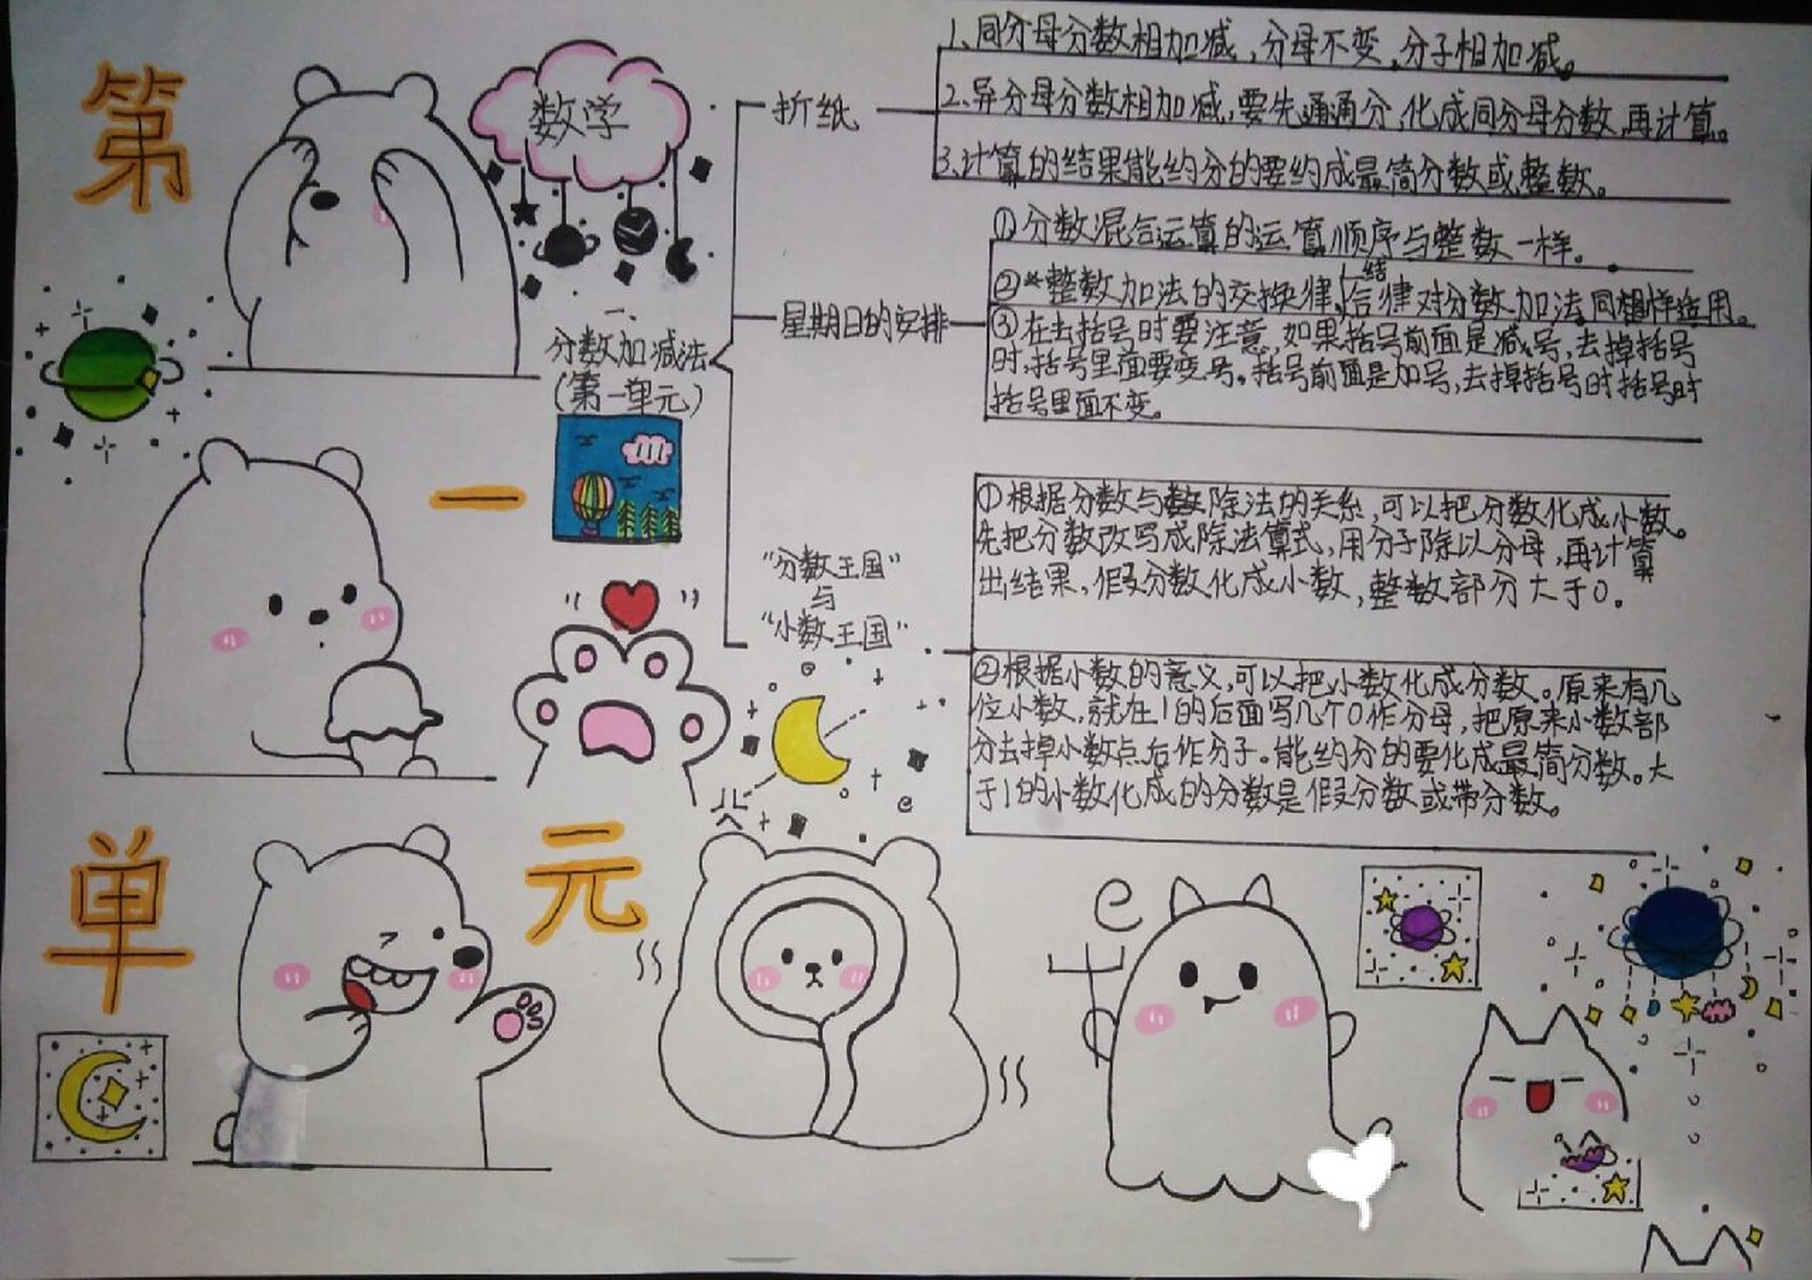 第
一
单
元
数学
一、
分数加减法
(第一单元)
折纸
1、同分母分数相加减,分母不变,分子相加减。
2、异分母分数相加减,要先通通分,化成同分母分数,再计算。
3、计算的结果能约分的要约成最简分数或整数。
星期日的安排
①分数混合运算的运算顺序与整数一样。
②*整数加法的交换律,结合律对分数加法同样适用。
③在去括号时要注意,如果括号前面是减号,去掉括号
时,括号里面要变号。括号前面是加号,去掉括号时括号时
括号里面不变。
"分数王国"
与
"小数王国"
①根据分数与除法的关系,可以把分数化成小数。
先把分数改写成除法算式,用分子除以分母,再计算
出结果,假分数化成小数,整数部分大于0。
②根据小数的意义,可以把小数化成分数。原来有几
位小数,就在1的后面写几个0作分母,把原来小数部
分去掉小数点后作分子。能约分的要化成最简分数。大
于1的小数化成的分数是假分数或带分数。